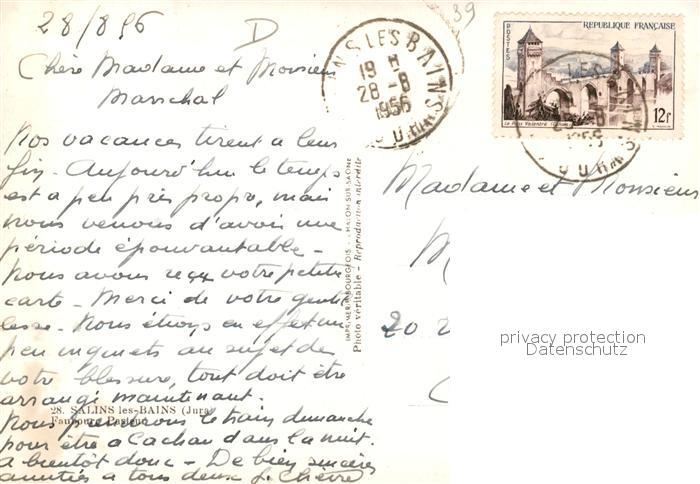 28/8 56
D
39
Chère Madame et Monsieur
Marschal
Nos vacances tirent a leur
fin. Aujourd'hui le temps
est a peu près propre, mais
nous venons d'avoir une
période épouvantable -
Nous avons reçu votre petite
carte - Merci de votre gentil
lesse. Nous étions en effet un
peu inquiets au sujet de
votre blessure, tout doit être
arrangé maintenant.
Nous prenons le train dimanche
pour être a Cachan dans la nuit.
a bientôt donc - De bien sincères
amitiés a tous deux J. Chèvre
28. SALINS les-BAINS (Jura)
Faubourg Pasteur
IMPRIMERIE BOURGEOIS - CHALON-SUR-SAONE
Photo véritable - Reproduction interdite
INS LES BAINS
19 H
28 - 8
1956
JURA
POSTES
REPUBLIQUE FRANÇAISE
Le Pont Valentré
12f
1956
JURA
Madame et Monsieur
M
20
privacy protection
Datenschutz